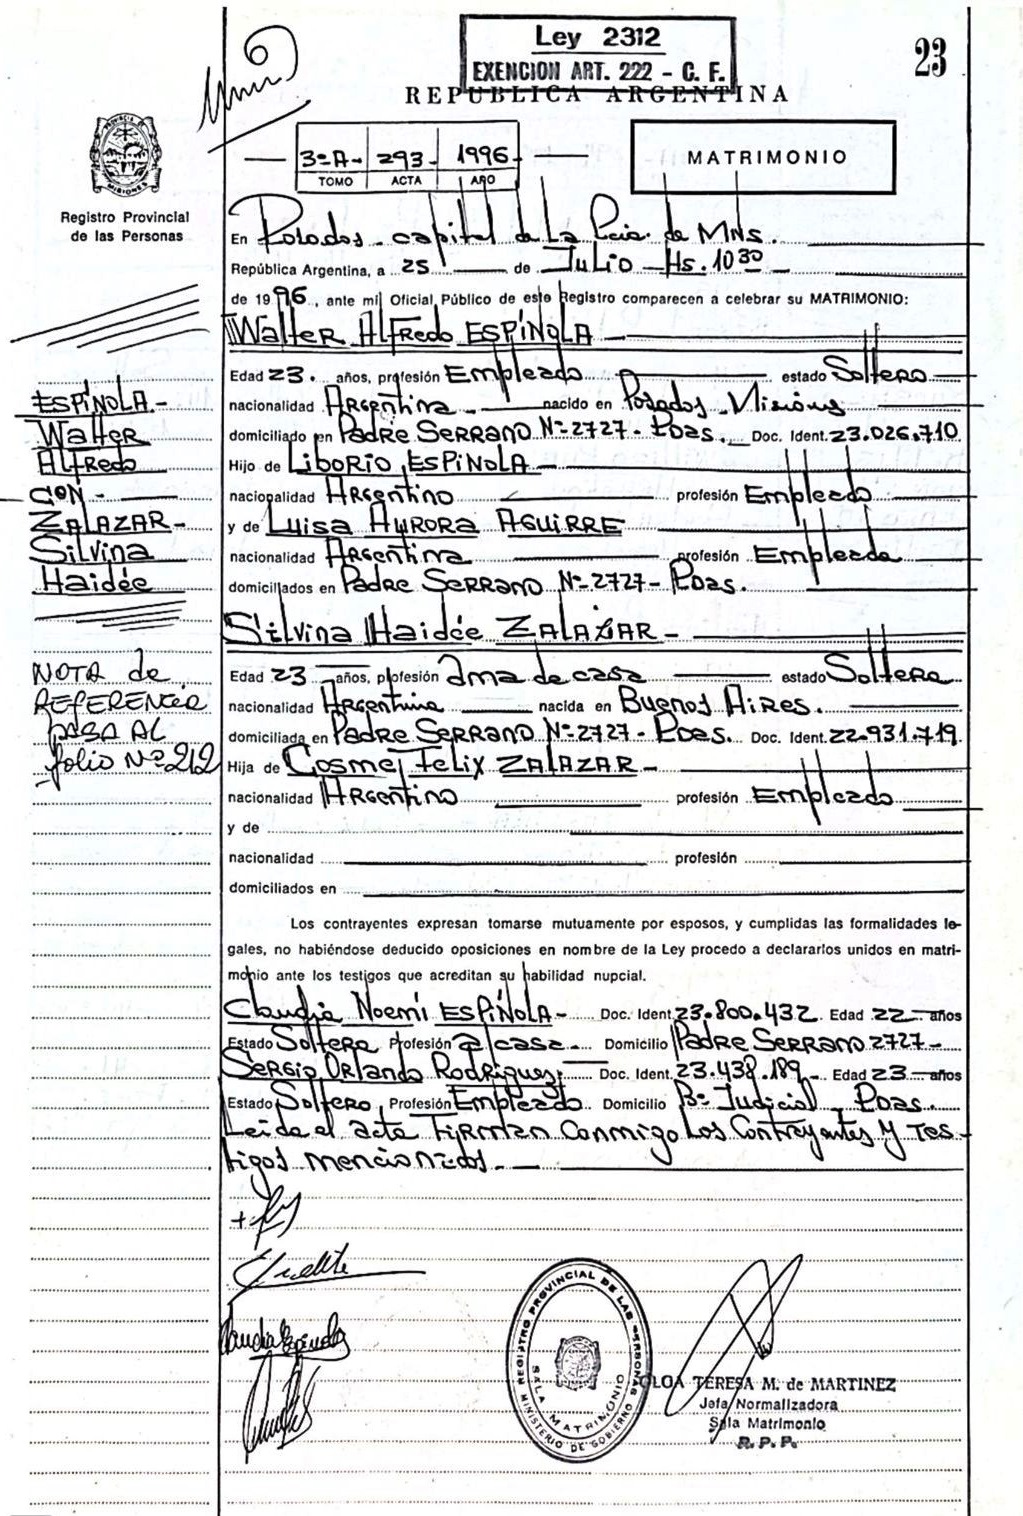 Ley 2312
EXENCION ART. 222 - C. F.
23
REPUBLICA ARGENTINA
PROVINCIA DE MISIONES
Registro Provincial
de las Personas
3º-A- 293- 1996-
TOMO ACTA AÑO
MATRIMONIO
En Posadas - capital de La Pcia. de MNS.
República Argentina, a 25 de JuLio Hs. 10 30
de 1996, ante mí Oficial Público de este Registro comparecen a celebrar su MATRIMONIO:
Walter Alfredo ESPÍNOLA
Edad 23. años, profesión Empleado estado Soltero
nacionalidad Argentina nacido en Posadas - Misiones
domiciliado en Padre Serrano Nº 2727 - Pdas. Doc. Ident. 23.026.710
Hijo de Liborio ESPíNOLA
nacionalidad Argentino profesión Empleado
y de Luisa Aurora AGUIRRE
nacionalidad Argentina profesión Empleada
domiciliados en Padre Serrano Nº 2727 - Pdas.
Silvina Haidée ZALAZAR -
Edad 23 años, profesión ama de casa estado Soltera
nacionalidad Argentina nacida en Buenos Aires.
domiciliada en Padre Serrano Nº 2727 - Pdas. Doc. Ident. 22.931.719
Hija de Cosme Felix ZALAZAR -
nacionalidad Argentino profesión Empleado
y de
nacionalidad profesión
domiciliados en
Los contrayentes expresan tomarse mutuamente por esposos, y cumplidas las formalidades le-
gales, no habiéndose deducido oposiciones en nombre de la Ley procedo a declararlos unidos en matri-
monio ante los testigos que acreditan su habilidad nupcial.
Claudia Noemí ESPíNOLA - Doc. Ident. 23.800.432 Edad 22 años
Estado Soltera Profesión a/casa - Domicilio Padre Serrano 2727 -
Sergio Orlando Rodriguez Doc. Ident. 23.438.189 Edad 23 años
Estado Soltero Profesión Empleado Domicilio Bº Judicial - Pdas.
Leida el acta firman conmigo Los Contrayentes y Tes-
tigos mencionados.
ESPíNOLA -
Walter
Alfredo
CON -
ZALAZAR -
Silvina
Haidée
NOTA de
REFERENCIA
PASA AL
folio Nº 212
Claudia Espinola
REGISTRO PROVINCIAL DE LAS PERSONAS
SALA MATRIMONIO
MINISTERIO DE GOBIERNO
OLGA TERESA M. de MARTINEZ
Jefa Normalizadora
Sala Matrimonio
R. P. P.